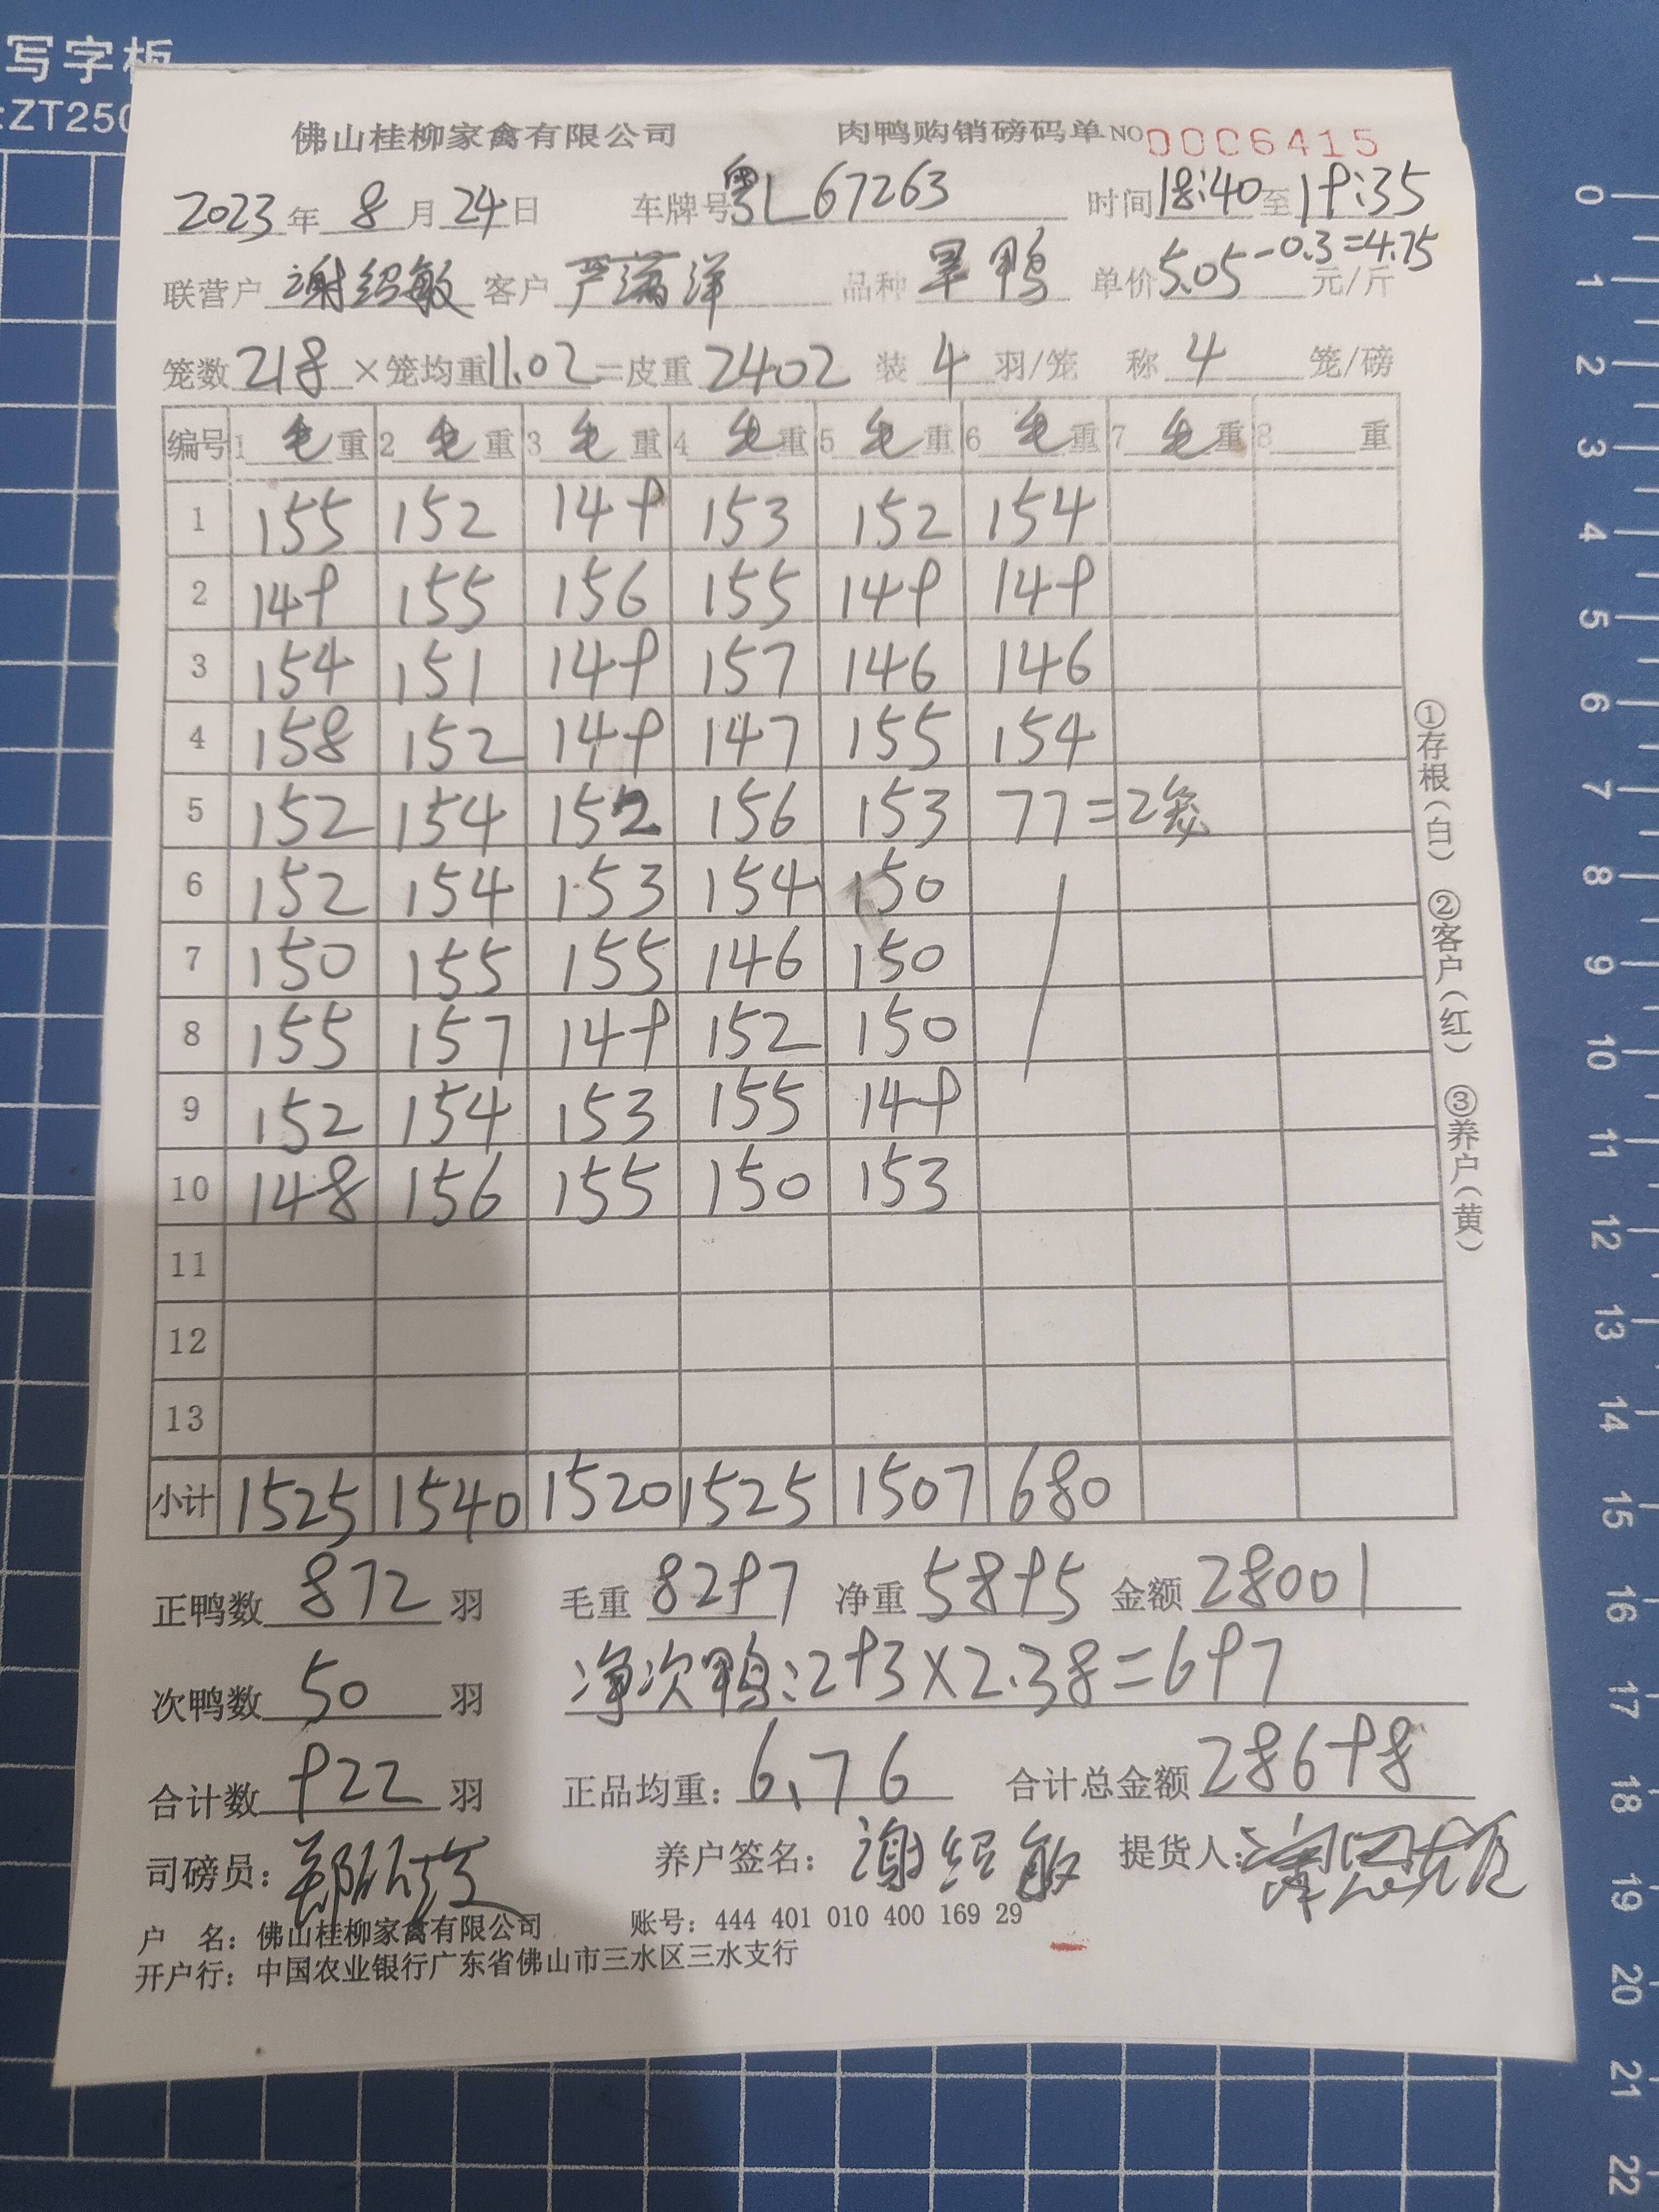 写字板
:ZT250
佛山桂柳家禽有限公司 肉鸭购销磅码单 NO 0006415
2023年 8月 24日 车牌号 粤L67263 时间 18:40 至 19:35
联营户 谢绍敏 客户 品种 旱鸭 单价 5.05-0.3=4.75 元/斤
笼数 218 ×笼均重 11.02 =皮重 2402 装 4 羽/笼 称 4 笼/磅
编号 1 毛重 2 毛重 3 毛重 4 毛重 5 毛重 6 毛重 7 毛重 8 重
1 155 152 149 153 152 154
2 149 155 156 155 149 149
3 154 151 149 157 146 146
4 158 152 149 147 155 154
5 152 154 152 156 153 77=2笼
6 152 154 153 154 150
7 150 155 155 146 150
8 155 157 149 152 150
9 152 154 153 155 149
10 148 156 155 150 153
11
12
13
小计 1525 1540 1520 1525 1507 680
正鸭数 872 羽 毛重 8297 净重 5895 金额 28001
次鸭数 50 羽 净次鸭:293×2.38=697
合计数 922 羽 正品均重: 6.76 合计总金额 28698
司磅员: 养户签名: 谢绍敏 提货人:
户 名: 佛山桂柳家禽有限公司 账号: 444 401 010 400 169 29
开户行: 中国农业银行广东省佛山市三水区三水支行
①存根(白) ②客户(红) ③养户(黄)
0
1
2
3
4
5
6
7
8
9
10
11
12
13
14
15
16
17
18
19
20
21
22